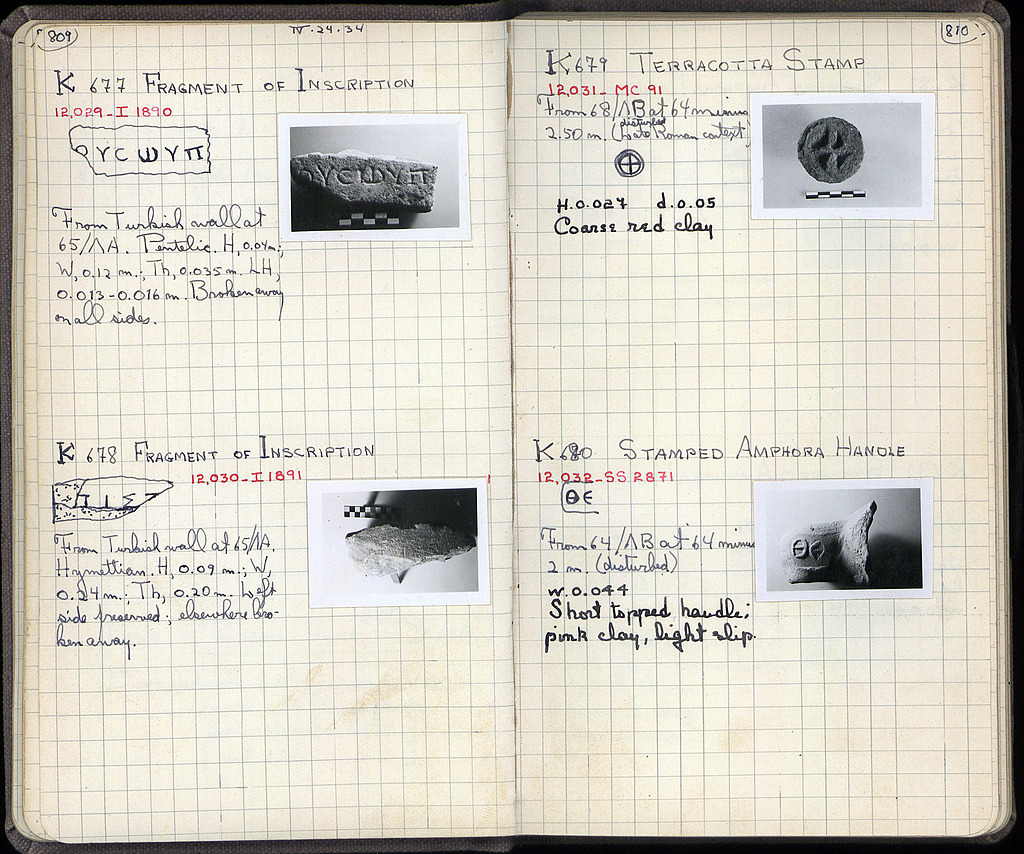 809
IV·24·34
K 677 FRAGMENT OF INSCRIPTION
12,029-I 1890
ΟΥϹΩΥΠ
ΟΥϹΩΥΠ
From Turkish wall at
65/ΛΑ. Pentelic. H, 0.04 m;
W, 0.12 m.; Th, 0.035 m. LH,
0.013-0.016 m. Broken away
on all sides.
K 678 FRAGMENT OF INSCRIPTION
12,030-I 1891
From Turkish wall at 65/ΛΑ.
Hymettian. H, 0.09 m.; W,
0.24 m.; Th, 0.20 m. Left
side preserved; elsewhere bro-
ken away.
810
K 679 TERRACOTTA STAMP
12,031- MC 91
From 68/ΛΒ at 64 minus
2.50 m. (disturbed Late Roman context)
H. 0.027 d. 0.05
Coarse red clay
K 680 STAMPED AMPHORA HANDLE
12,032-SS 2871
ΘΕ
From 64/ΛΒ at 64 minus
2 m. (disturbed)
W. 0.044
Short topped handle;
pink clay, light slip.